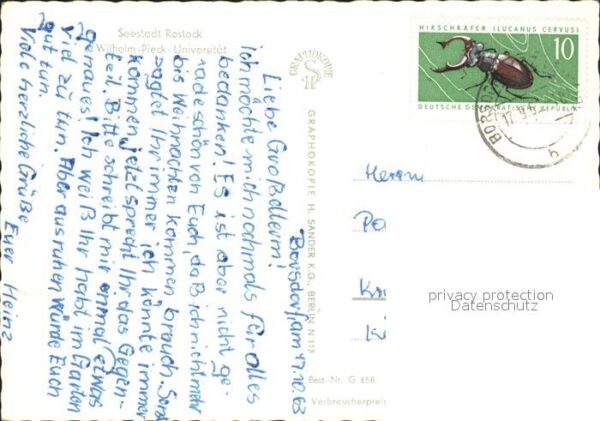 Seestadt Rostock
Wilhelm-Pieck-Universität
Borsdorf am 17.10.63
Liebe Großeltern!
Ich möchte mich nochmals für alles
bedanken! Es ist aber nicht ge-
rade schön von Euch, daß ich nicht mehr
bis Weihnachten kommen brauch. Sonst
sagtet Ihr immer ich könnte immer
kommen, jetzt sprecht Ihr das Gegen-
teil. Bitte schreibt mir einmal etwas
genaues! Ich weiß Ihr habt im Garten
viel zu tun. Aber ausruhen würde Euch
gut tun.
Viele herzliche Grüße
Euer Heinz
GRAPHOKOPIE
H S
GRAPHOKOPIE H. SANDER K.G. BERLIN N 113
Best.-Nr. G 656
Verbraucherpreis
HIRSCHKÄFER (LUCANUS CERVUS)
10
DEUTSCHE DEMOKRATISCHE REPUBLIK
BORS
17.
Herrn
privacy protection
Datenschutz